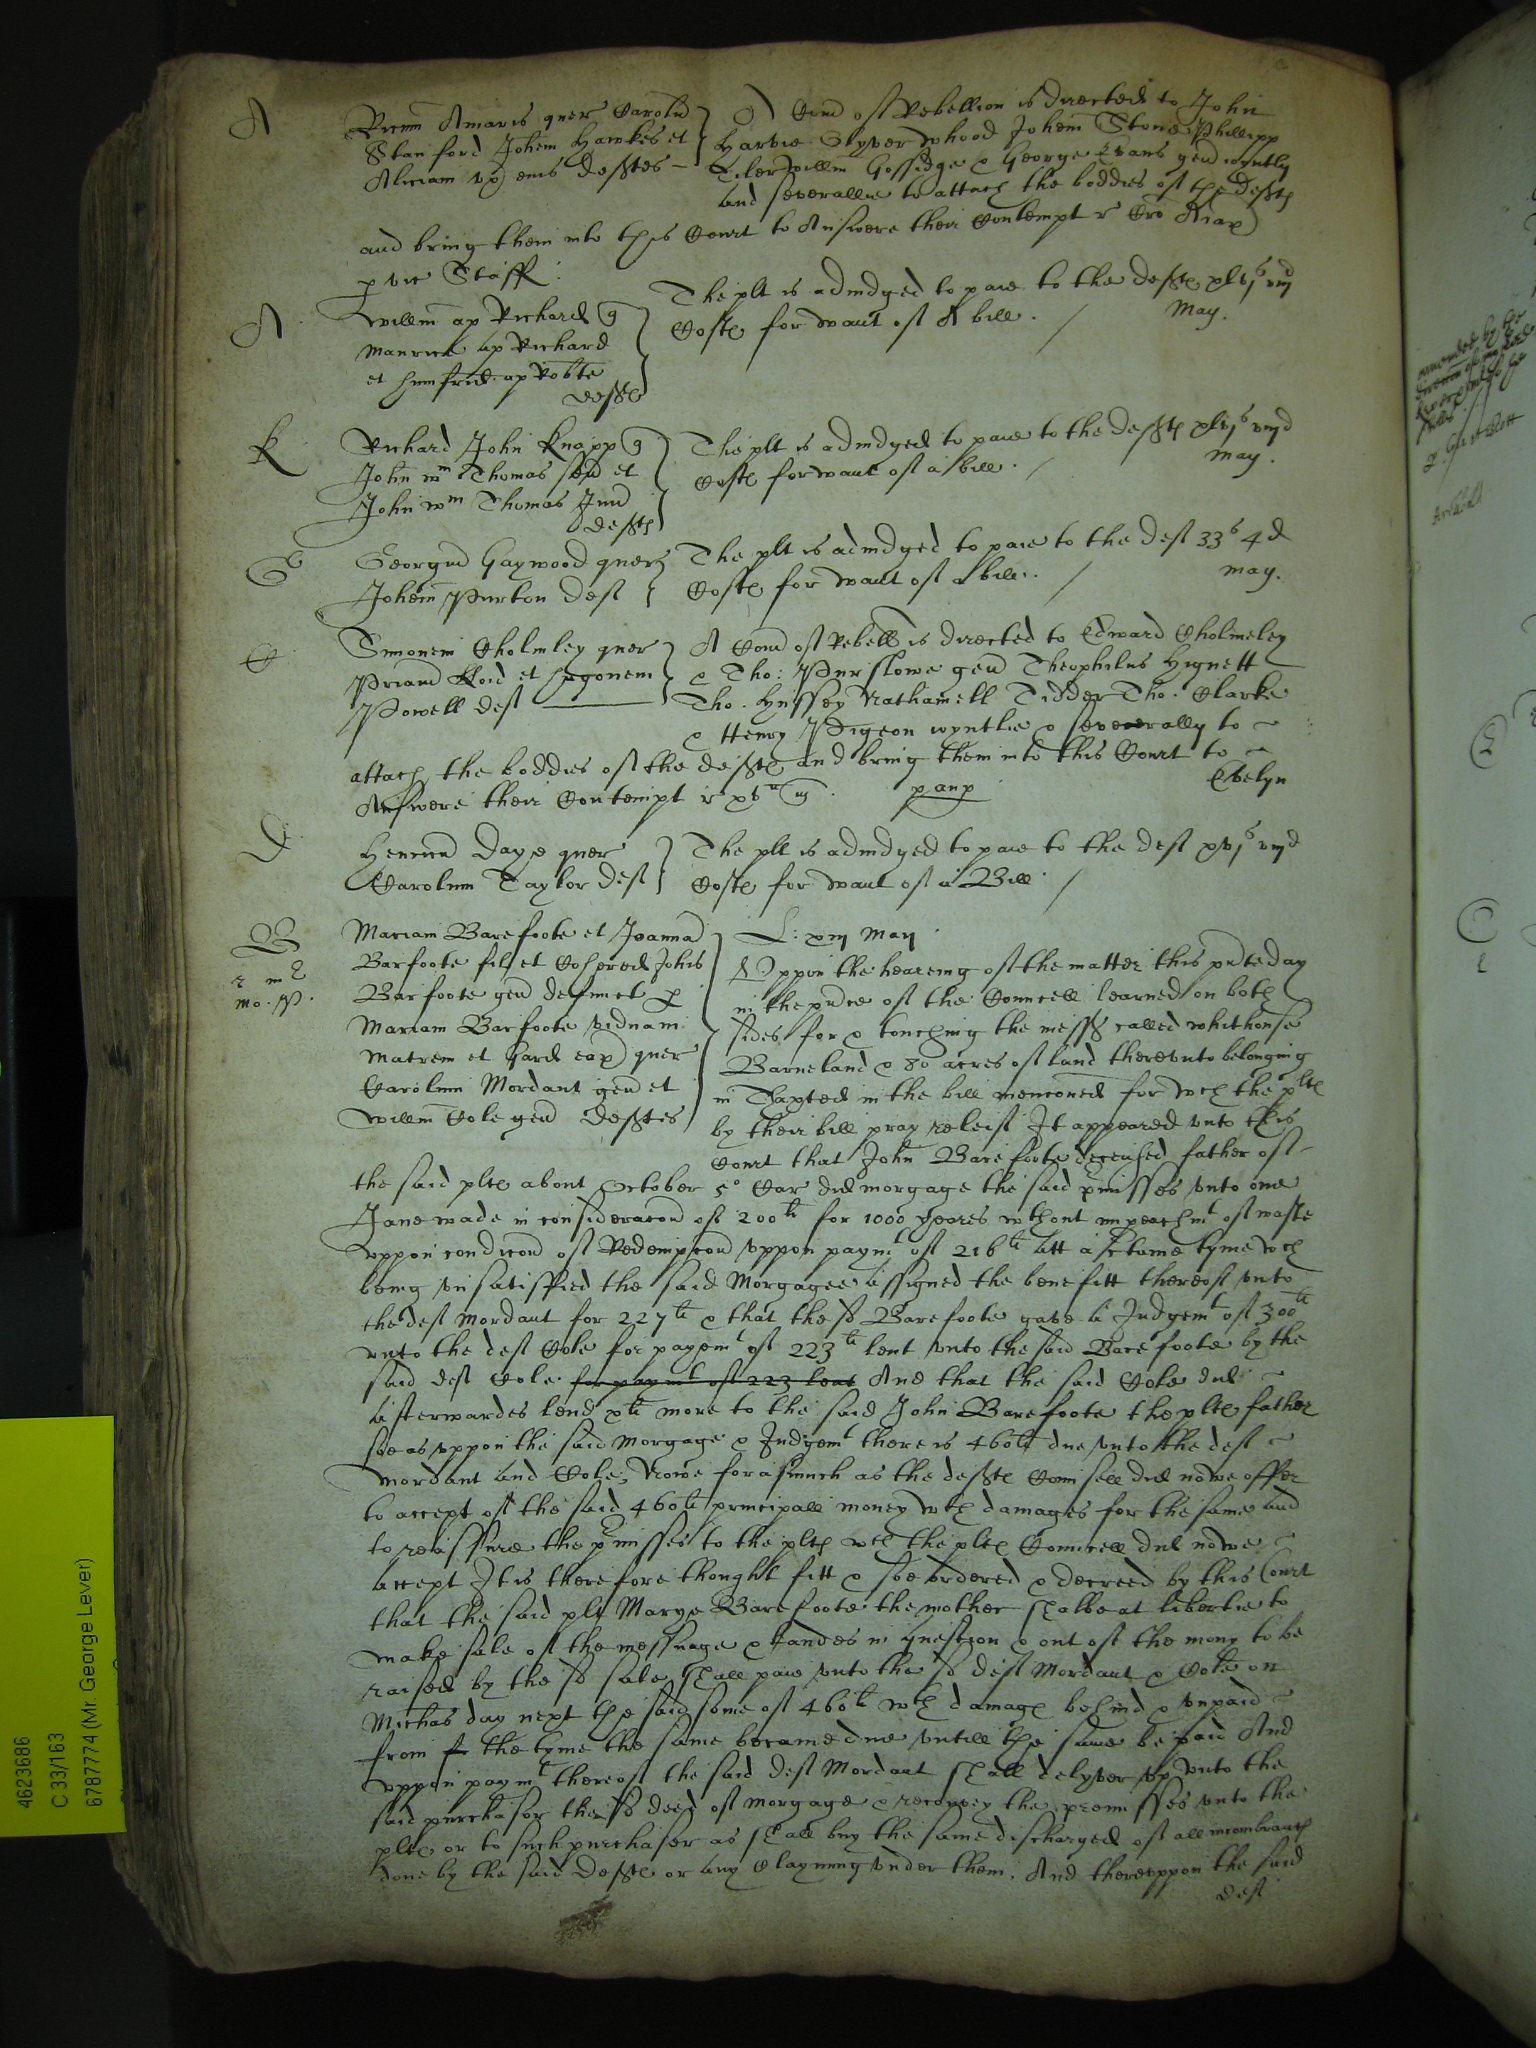 A
Ricum Amaris quer Carolu
Stanford Johem Hawkes et
Aliciam ux eius deftes
A Com of Rebellion is directed to John
Harvie Olyver Whood Johem Stone Phillipp
Tiler Willm Gossidge & George Evans gen ioyntly
and severallie to attach the boddies of the deftes
and bring them into this Court to Answere their Contempt
p vic Staff
A
Willm ap Richard q
Maurice ap Richard
et Humfrid ap Robte
deftes
The plt is adiudged to paie to the deftes xxvj s viij d
Costes for want of A bill. /
May.
K
Richard John Knapp q
John Wm Thomas sen et
John Wm Thomas Jun
deftes
The plt is adiudged to paie to the deftes xxvj s viij d
Costes for want of a bill. /
may.
G
Georgiu Gaywood quer
Johem Purton deft
The plt is adiudged to paie to the deft 33s 4d
Costes for want of a bill. /
may.
C
Simonem Cholmley quer
Priamu lloid et Hugonem
Powell deft
A Com of Rebell is directed to Edward Cholmeley
& Tho: Purslowe gen Theophilus Hignett
Tho. Hussey Nathaniell Tidder Tho. Clarke
& Henry Pigeon ioyntlie & severally to
attach the boddies of the deftes and bring them into this Court to
Answere their Contempt
Evelyn
D
Henricu Daye quer
Carolum Taylor deft
The plt is adiudged to paie to the deft xxvj s viij d
Costes for want of a Bill /
B
Mariam Barefoote et Joanna
Barfoote fil et Cohered Johis
Barfoote gen defunct p
Mariam Barfoote viduam
Matrem et Gard eap quer
Carolum Mordant gen et
Willm Cole gen deftes
L: xiij May
Uppon the heareing of the matter this pnte day
in the pnce of the Councell learned on both
sides for & touching the messs called Whithouse
Barneland & 80 acres of land thereunto belonging
in Thaxted in the bill menconed for wch the pltes
by their bill pray releif It appeared unto this
Court that John Barefoote deceased father of
the said pltes about October 5o Car did morgage the said pmisses unto one
Jane Wade in consideracon of 200li for 1000 yeares without impeachmt of waste
uppon condicon of Redempcon uppon paymt of 216li att a certeine tyme wch
being unsatisfied the said Morgagee assigned the benefitt thereof unto
the deft Mordant for 227li & that the sd Barefoote gave a Judgemt of 300li
unto the deft Cole for payemt of 223li lent unto the said Barefoote by the
said deft Cole for paymt of 223 lent And that the said Cole did
afterwardes lend xli more to the said John Barefoote the pltes father
soe as uppon the said Morgage & Judgemt there is 460li due unto the deft
Mordant and Cole, Nowe forasmuch as the deftes Counsell did nowe offer
to accept of the said 460li principall money wth damages for the same and
to reassure the pmisses to the pltes wch the pltes Councell did nowe
accept It is therefore thought fitt & soe ordered & decreed by this Court
that the said plt Marye Barefoote the mother shalbe at libertie to
make sale of the messuage & landes in question & out of the mony to be
raised by the sd sale shall paie unto the sd deft Mordant & Cole on
Michas day next the said some of 460li wth damages behind & unpaid
from the tyme the same became due untill the same be paid And
uppon paymt thereof the said deft Mordant shall delyver up unto the
said purchasor the sd deed of Morgage & reconvey the premisses unto the
pltes or to such purchaser as shall buy the same discharged of all incombrances
done by the said Deftes or any Clayming under them. And thereuppon the said
deft
4623686
C 33/163
6787774 (Mr. George Lever)